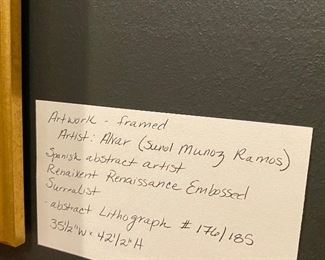 Artwork - framed
Artist: Alvar (Sunol Munoz Ramos)
Spanish abstract artist
Renaixent Renaissance Embossed
Surrealist
- abstract Lithograph # 176/185
35 1/2" W x 42 1/2" H